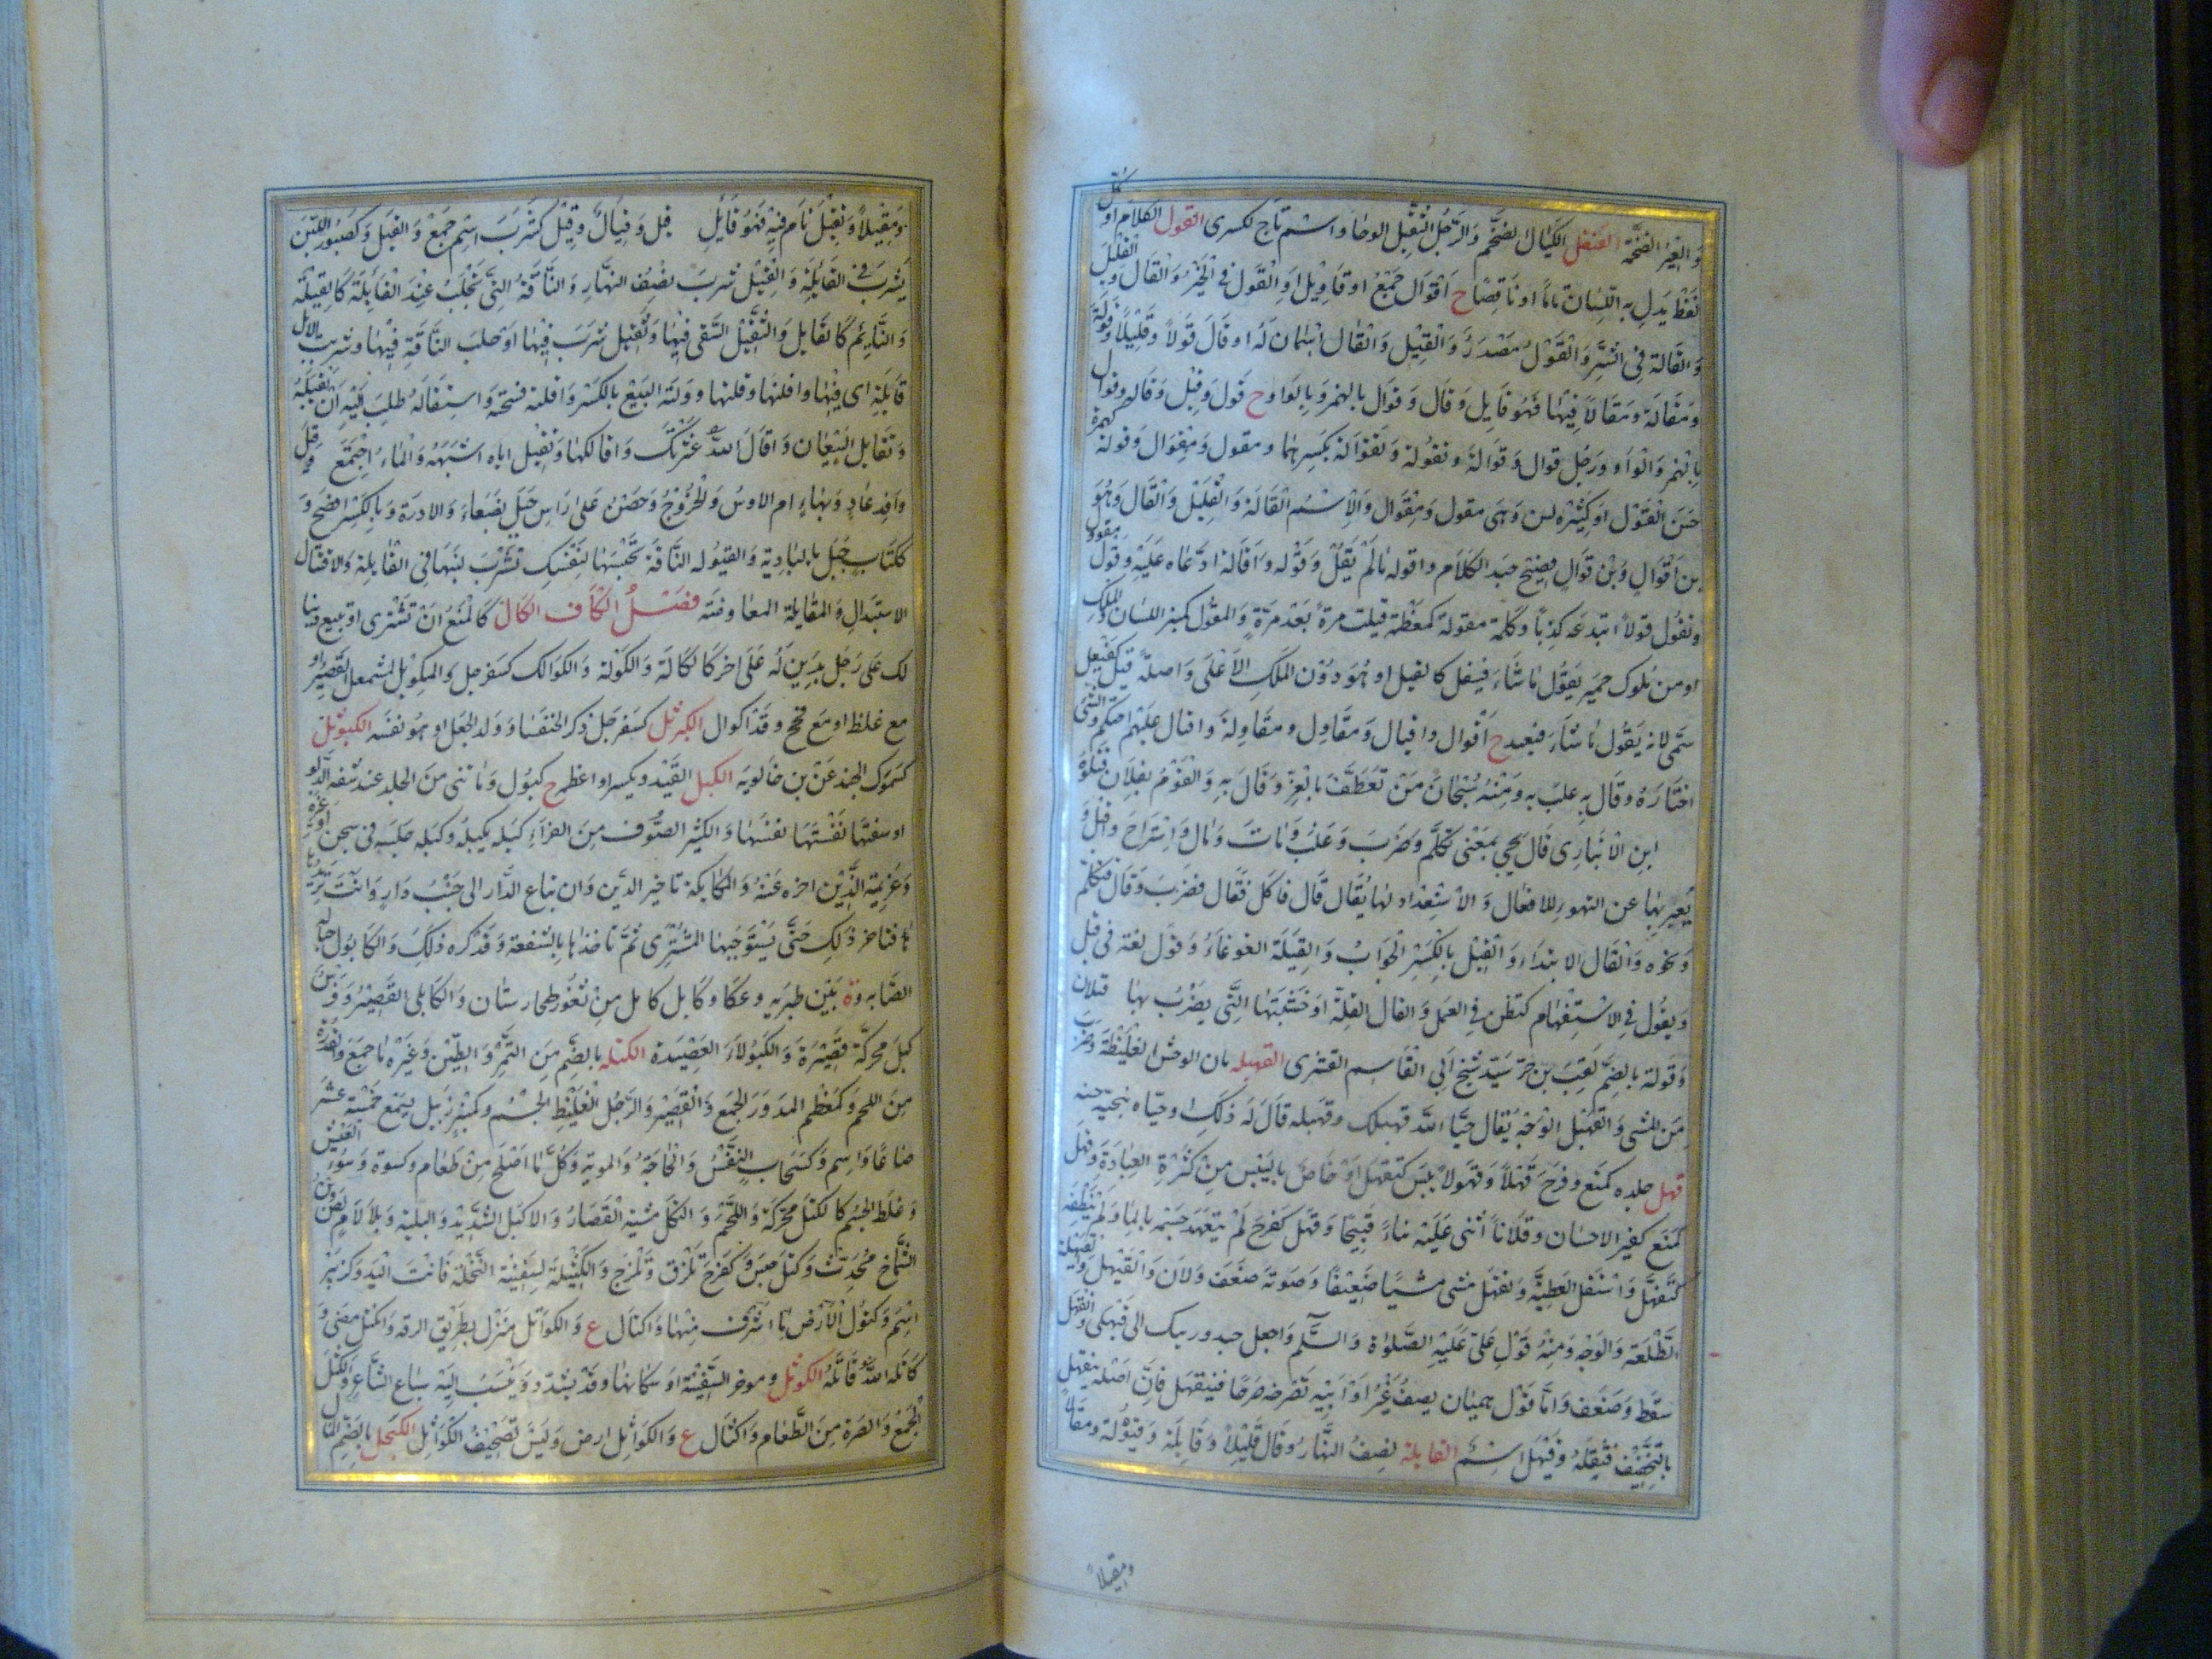 وَالعِيرُ الضَّخْمَة القنقل الكَيَالُ الضَّخْم وَالرَّجُلُ الثَّقِيل الوطا واسم تاج لكسرى القول الكلام او كل
لفظ يَدل به اللسان تاماً او ناقصًا ح اَقْوَال جَمْعُ اوقَاوِيل اوِ القَول فِى الْخَيْرُ وَالْقَال وَ القليل
وَالقَالة فِى الشَّرِّ وَالْقَوْلُ مَصْدَرٌ وَالْقِيْل وَالْقَال اسْمان لَهُ او قَالَ قَوْلاً وَقِيْلاً وَقولَة
وَمَقَالَة وَمَقَالاً فِيْهَا فَهُو قَايِل وَقَال وَقوَال بالهمز وَبِالوَاو ح قول وَقِيْل وَقَاله وقوال
بِالهْمزِ وَالْوَاو وَرَجُل قوال وَقوالة وتقولة وَتقوالة بِكَسْرِهِما ومقول وَمِقوَال وَقوله كهمزة
حَسَن القَوْل او كَثِيْره لسن وَهِىَ مقول وَمِقْوَال وَالْاِسْمُ القَالَة وَالْقِيْل وَالْقَال وَهُوَ
بن اَقْوَال وَبْن قوال فِصِيْح جَيّد الكَلَام واقوله مَا لَمْ يَقُلْ وَقَوَّله وَاَقَالَهُ ادَّعَاه عَلَيْه وَقَول مقول
وتقول قولاً ابتدعه كذِباً وَكلمة مقولة كمعَظّمة قيلت مرة بَعْدَ مَرّةٍ وَالمقول كمنبر اللسان وَالملك
او من مُلوك حمير يَقُول مَا شَاءَ فيُنفل كالقيل او هُوَ دُوْن المَلَك الاَعْلَى وَاصله قيّل كَفَيْعِل
سُمّى لانه يَقُول مَا شَاءَ فيُنفد ح اَقْوَال واقيال وَمقَاوِل ومقَاولة وَاقتال عليْهم احتكم وَالشئ
اختَارَهُ وَقَال بِه غلبَ به وَمِنْهُ سُبْحَانَ مَنْ تَعَطَّفَ بِالْعِزِّ وَقَالَ بِهِ وَالْقَوْمُ بِفلَان قتلوهُ
ابن الاَنْبَارِى قَال يَجِى بمَعْنَى تَكَلَّم وَضَرَبَ وَغلبَ وَمَاتَ وَمَال وَاسْتَرَاحَ واقبل وَ
يُعبر بِهَا عن التهور للافعال وَالاسْتِعْدَاد لها يُقَال قَال فَاكَل فَقَال فضربَ وَقَال فتكلم
وَنحوه وَالْقَال الابتدَاء وَالْقِيْل بِالْكَسْر الْجَوَابُ وَالقِيْلَة الغوغاءُ وَقول لغة فى قيل
وَيقُول فِى الاسْتِفْهام كتظُن فِى العَمَل وَالقال القُلّة او خَشَبتهَا التَّى يَضْرُب بِهَا قيلان
وَقولة بِالضَّمّ لَقب بن خر سَيّد شيْخ اَبِى القَاسِم القشرى القهبلة بان الوحش الغليْظَة وَضرب
مِنَ المشى وَالْقَهْبَل الوَجْهُ يُقَال حَيَّا اللّه قهبلك وقَهبله قال لَه ذلكَ وحيّاه بتحيّة حسنة
قهل جلده كمَنَع وَفرِحَ قَهْلًا وَقهُولاً يَبَسَ كتقهل اَوْ خَاصّ بِاليبس مِنْ كَثْرَة العِبَادَة وَقهل
كمَنع كفر الاحسَان وَفلَاناً اثنى عَلَيْه ثناءً قَبِيْحًا وَقهل كَفرِحَ لَمْ يتعَهّد جسمه بِالماءِ وَلم يُنظفه
كتقهل وَاسْتَقل العَطيّة وَتقهل مَشَى مشيًا ضَعِيْفًا وَصَوته ضعُفَ وَلَان وَالْقَيْهل وَالقيهلة
الطّلعَة وَالوَجْه وَمِنْهُ قَوْل عَلىّ عَلَيْهِ الصَّلوٰة وَالسَّلَم وَاجعل حندوريتك الى قيهلى وَانقهل
سقط وَضَعفَ وَامّا قَوْل هميان يصِفُ عَيرًا وَاُتُنِه تضرحه ضرحًا فينقهل فاِنَّ اصْله ينقهل
بالتخْفِيْف فَثقلَهُ وَقَيْهَل اسْم القايلة نِصفُ النَّهَارُ وَقَال قَيْلًا وَقَايِلَة وَقيْلُولة ومقَالاً
ومقيلاً
وَمَقِيْلاً وَتقِيْل نَام فِيْهِ فَهُوَ قَائِل قيل وَقِيَالٌ وقَيْل كشَرَبَ اسْم جَمْع وَالقيْل وَكَصَبُور اللبَن
يَشْرَب فِى القَائِلة وَالْقيْل شُربَ نِصْفِ النَّهَار وَالنَّاقَةُ الَّتِى تُحْلَبُ عِنْدَ الْقَائِلَة كالقِيلَة
وَالنَّايِم كالقَايل وَالتَّقْيِيْل السَّقى فِيْهَا وَتقيل شَرَبَ فِيْهَا اَوْ حَلبَ النَّاقَةَ فِيْهَا وَشربتِ الابل
قَايلَة اى فِيْهَا وَاقلتهَا وقلتها وقلته البَيْع بِالكَسْرِ وَاقلته فسخته وَاسْتقَالَهُ طلِبَ اِليهِ اَنْ يُقيلَهُ
وَتقَايل البَيّعَان وَاقَال اللّه عَثْرَتَك وَاقالكها وَتقيل اباه اشبَهَهُ وَالماءُ اجتمع وَقيل
وَافِد عَادٍ وبهاءٍ ام الاوسُ وَالْخَزْرَجُ وَحصْن عَلى رَاسِ جَبَل بصَنعاءَ وَالادرَة وَيُكسر افصحَ وَ
ككتَاب جَبَل بالبَادِية وَالقيُوله النَّاقَة تَحْبسهَا لنَفْسِك تشْرَبَ لبَنهَا فى القَايلة وَالاقتيال
الاستبدَال وَالمقَايلة المعَاوضَة فَصْلُ الْكَاف الكَال كالْمَنْع اَنْ تشترى اوتبيع دَينا
لك عَلى رَجل بِدَيْن لَه عَلَى اخر كالكالَة وَالكَوْلة وَالكوالل كسَفرجل وَالمكوئِل كمشمعل القَصِيْر او
مع غلظ او مَع فَحج وَقَدْ اكوال الكبرتل كسَفرجَل ذكر الخنفسا وَولد الجعَل او هُو نفسَه الكبوتل
كسَمَوك الهند عَنْ بن خَالويَه الكبل القَيْد وَيكسر او اعظمه ح كبُول وَمَا ثنى منَ الجلد عند شفة الدّلو
او شفتهَا نفسهَا وَالكثير الصُّوْف مِنَ الفِرَاءِ كبَله يكبله وَكبَله حبَسَه فى سجن اوغيره
وَغَرِيمَه الدَّيْن اخره عَنْهُ وَالمكَابلَة تاخير الدَّين وَان تباع الدَّار الى جَنْبُ دَار وَانْتَ تريْد
هَا فتاخر ذلِك حَتَّى يَسْتَوْجبهَا المشتَرِى ثمَّ تاخذهَا بِالشفعة وَقَدْ كره ذلكَ وَالكابُول حبَالة
الصَّايد وة بَيْن طبريه وعَكا وكابل كامل مِنْ ثغُور طحارستان وَالكابلى القَصِيْرُ وَذُو
كبل محرَّكة قصيْرة وَالكبُولاءَ العَصِيْدة الكتلة بالضَّم مِنَ التَّمْر وَالطّيْن وَغَيْره مَا جمعَ وَالفدرة
مِنَ اللحم وَكمعَظّم المدَوّر المجتمع وَالْقَصِيْر وَالرَّجُل الْغَلِيْظ الجِسْمُ وكمنبر زَبيل يسَع خَمْسَة عشر
صَاعًا وَاسم وَكسَحَاب النَّفْسُ وَالْحَاجَة وَالموتة وَكُلّ مَا اُصْلح مِنْ طعَام وَكسوة وَسُوءِ العيش
وَغلَظ الجسْم كالكتل محَرَّكَة وَاللّحْمُ وَالكتل مشية القصَارُ وَالاكتل الشدِيْد وَالبليّة وَبلا لَام لصّ
الشماخ مُحَدِّث وَكتل حَبَسَ وَكَفرِحَ تلزّق وَتلزّج وَالكتِيْلة كسَفِيْنَة النَّخْلة فَاتت اليد وَكزبَيْر
اسْم وَكتول الاَرْض مَا اشرف مِنْهَا وَاكتال ع وَالكواتل مَنْزل بِطَرِيْق الرقة وَاكتل مضى وَ
كَاتلهُ اللّهُ قَاتلهُ الكوثل وموخر السّفِيْنَة او سكانها وَقَدْ يُشدّد وَيُنسَبُ اِليْه سِبَاع الشاعِر وَالكَثْلُ
الجَمْعُ وَالصُرة مِنَ الطعَام وَاكثال ع وَالكواثل ارض وَليسَ تَصْحِيْف الكواتل الكحل بالضَّم المَال